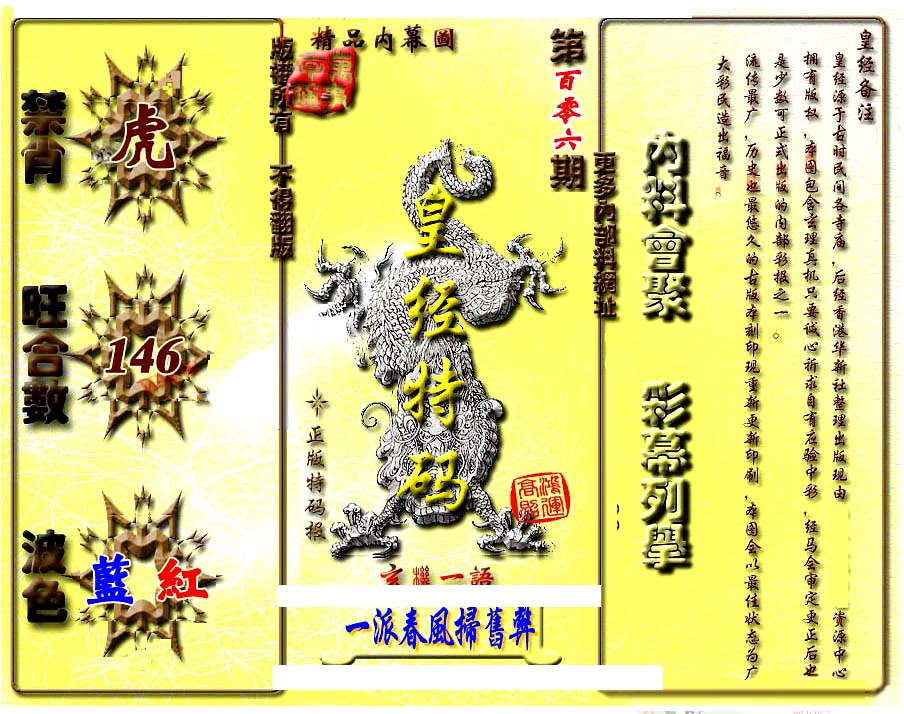 皇经备注
皇经源于古时民间各寺庙，后经香港华新社整理出版现由 资源中心
拥有版权，本图包含玄理真机只要诚心祈求自有应验中彩，经马会审定更正后也
是少数可正式出版的内部彩报之一。
流传最广，历史也最悠久的古版本刻印现重新更新印刷，本图会以最佳状态为广
大彩民造出福音
内料會聚 彩幕列舉
更多內部料網址
第百零六期
精品内幕圖
皇经特码
正版特码报
鴻運高照
玄機一語
一派春風掃舊弊
版權所有 不得翻版
禁肖
虎
旺合數
146
波色
藍 紅